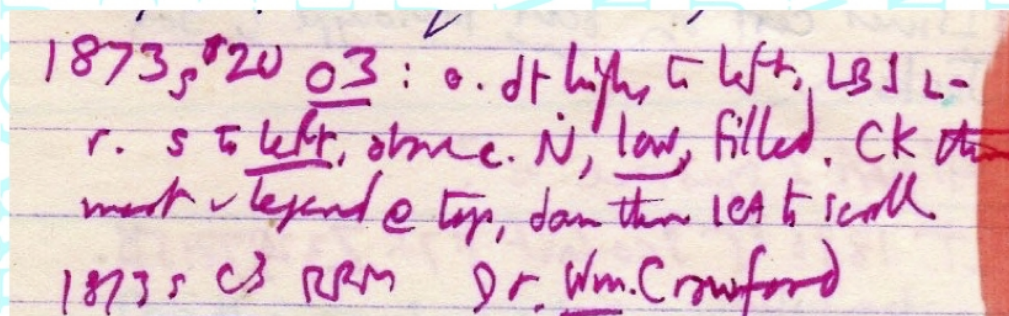 1873s $20 O3 : o. dt high, to left, LBJ L-
r. s to left, above c. N, low, filled. CK thru
most legend @ top, down thru to scroll
1873s C3 RRM Dr. Wm. Crawford